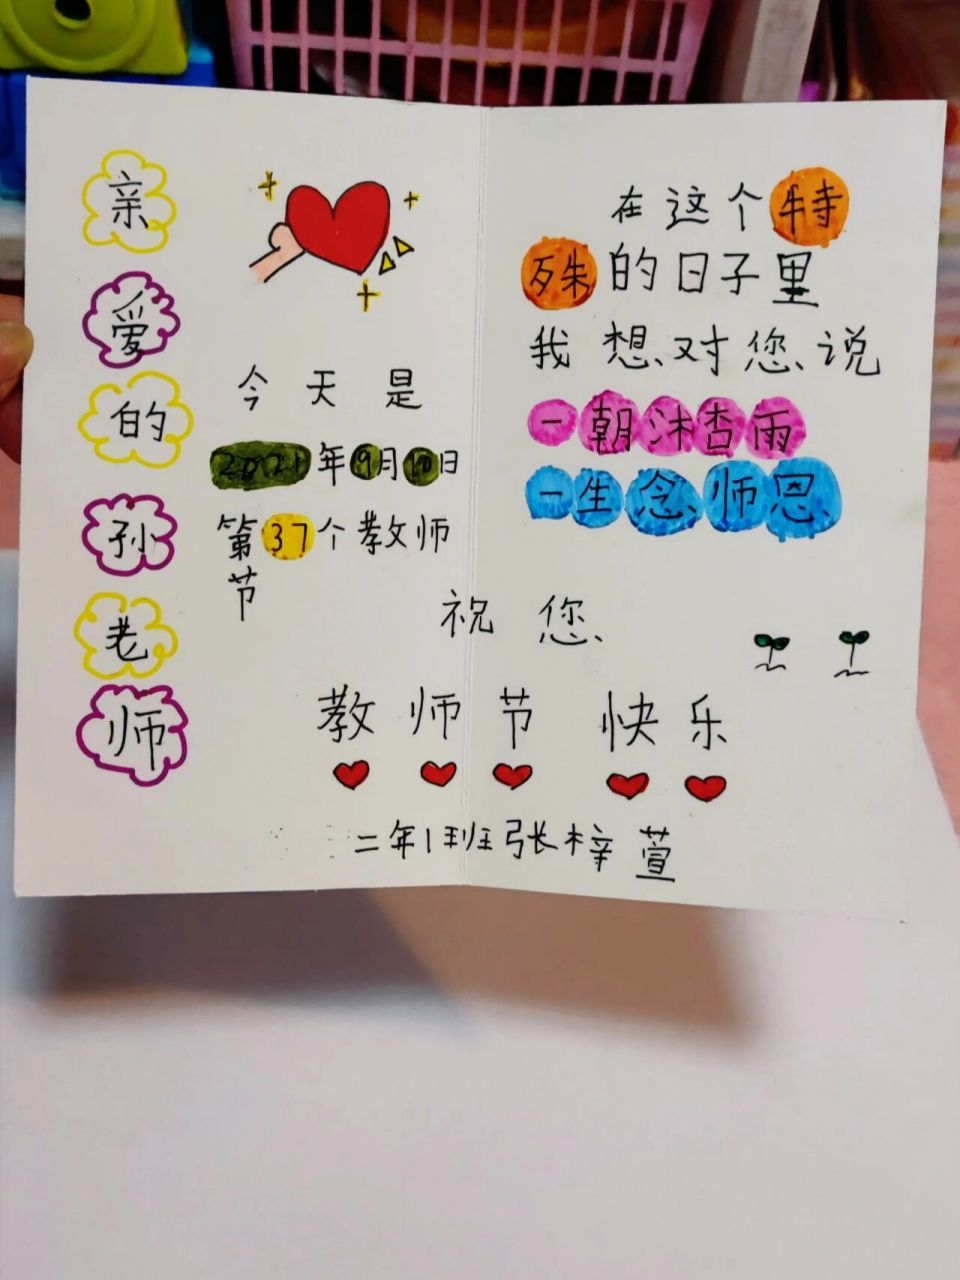 亲爱的孙老师
今天是
2021年9月10日
第37个教师
节
在这个特
殊的日子里
我想对您说
一朝沐杏雨
一生念师恩
祝您
教师节快乐
二年1班张梓萱